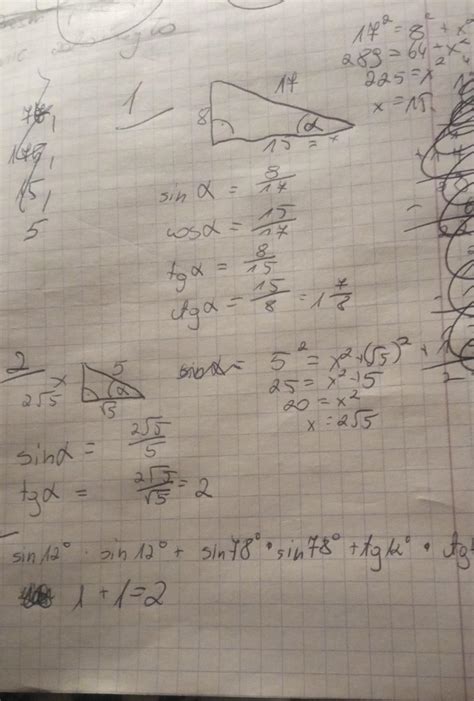 17² = 8² + x²
289 = 64 + x²
225 = x²
x = 15
1
17
8
α
15 = x
sin α = 8/17
cosα = 15/17
tgα = 8/15
ctgα = 15/8 = 1 7/8
15,
5
2
5
x
2√5
α
√5
5² = x² + (√5)²
25 = x² + 5
20 = x²
x = 2√5
sinα = 2√5/5
tgα = 2√5/√5 = 2
sin12° · sin12° + sin78° · sin78° + tg12° · tg
1 + 1 = 2